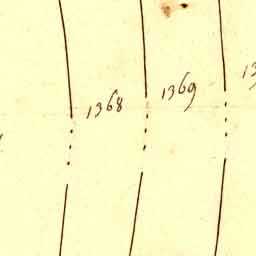 1368
1369